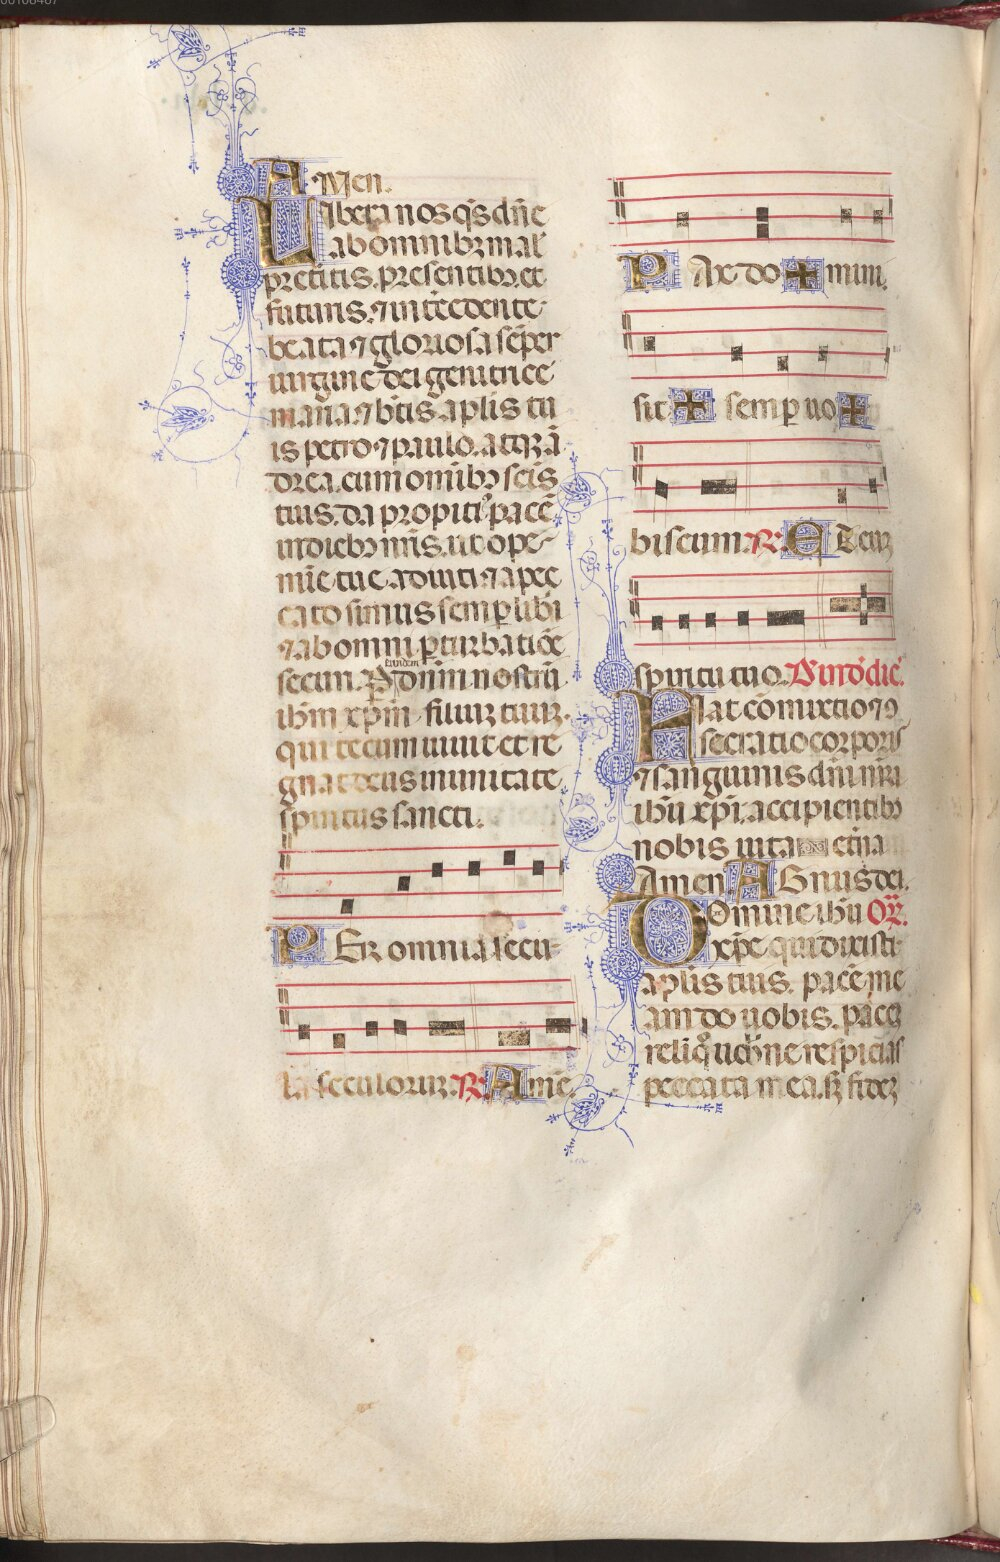 Amen.
Libera nos q̄s dn̄e
ab omnibꝫ mal̄
preteritis. presentibꝫ et
futuris. ⁊ intercedente
beata ⁊ gloriosa sēper
uirgine dei genitrice
maria. ⁊ btīs aplīs tu
is petro ⁊ paulo. atqꝫ ā
drea. cum omībꝫ scīs
tuis. da propiti᾽ pacē
in diebꝫ nrīs. ut ope
mīe tue adiuti. ⁊ a pec
cato simus semꝑ libī
⁊ ab omni ꝑturbatiōe
securi. eundem
Ꝑ dnm̄ nostrū
ihm̄ xpm̄ filiuꝫ tuuꝫ.
qui tecum uiuit et re
gnat deus in unitate
spiritus sancti.
Per omnia secu
la seculoruꝫ. ℞. Amē.
Pax do ✠ mini.
sit ✠ semꝑ uo ✠
biscum. ℞. Et cuꝫ
spiritu tuo.
Fiat cōmixtio ⁊ ꝯ
secratio corporis
⁊ sanguinis dn̄i nrī
ihū xpī. accipientibꝫ
nobis uita etīna
Amen. Agnus dei.
Domine ihū Or̄.
xpe. qui dixisti
aplīs tuis. pacē me
am do uobis. pacē
relīquo uobis. ne respicias
peccata mea. sꝫ fideꝫ